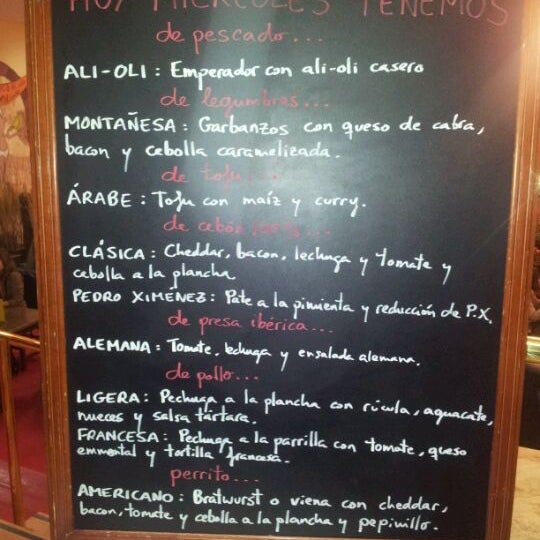 HOY MIÉRCOLES TENEMOS
de pescado...
ALI-OLI: Emperador con ali-oli casero
de legumbres...
MONTAÑESA: Garbanzos con queso de cabra,
bacon y cebolla caramelizada.
de tofu...
ÁRABE: Tofu con maíz y curry.
de cebón
CLÁSICA: Cheddar, bacon, lechuga y tomate y
cebolla a la plancha
PEDRO XIMENEZ: Paté a la pimienta y reducción de P.X.
de presa ibérica...
ALEMANA: Tomate, lechuga y ensalada alemana.
de pollo...
LIGERA: Pechuga a la plancha con rúcula, aguacate,
nueces y salsa tártara.
FRANCESA: Pechuga a la parrilla con tomate, queso
emmental y tortilla francesa.
perrito...
AMERICANO: Bratwurst o viena con cheddar,
bacon, tomate y cebolla a la plancha y pepinillo.